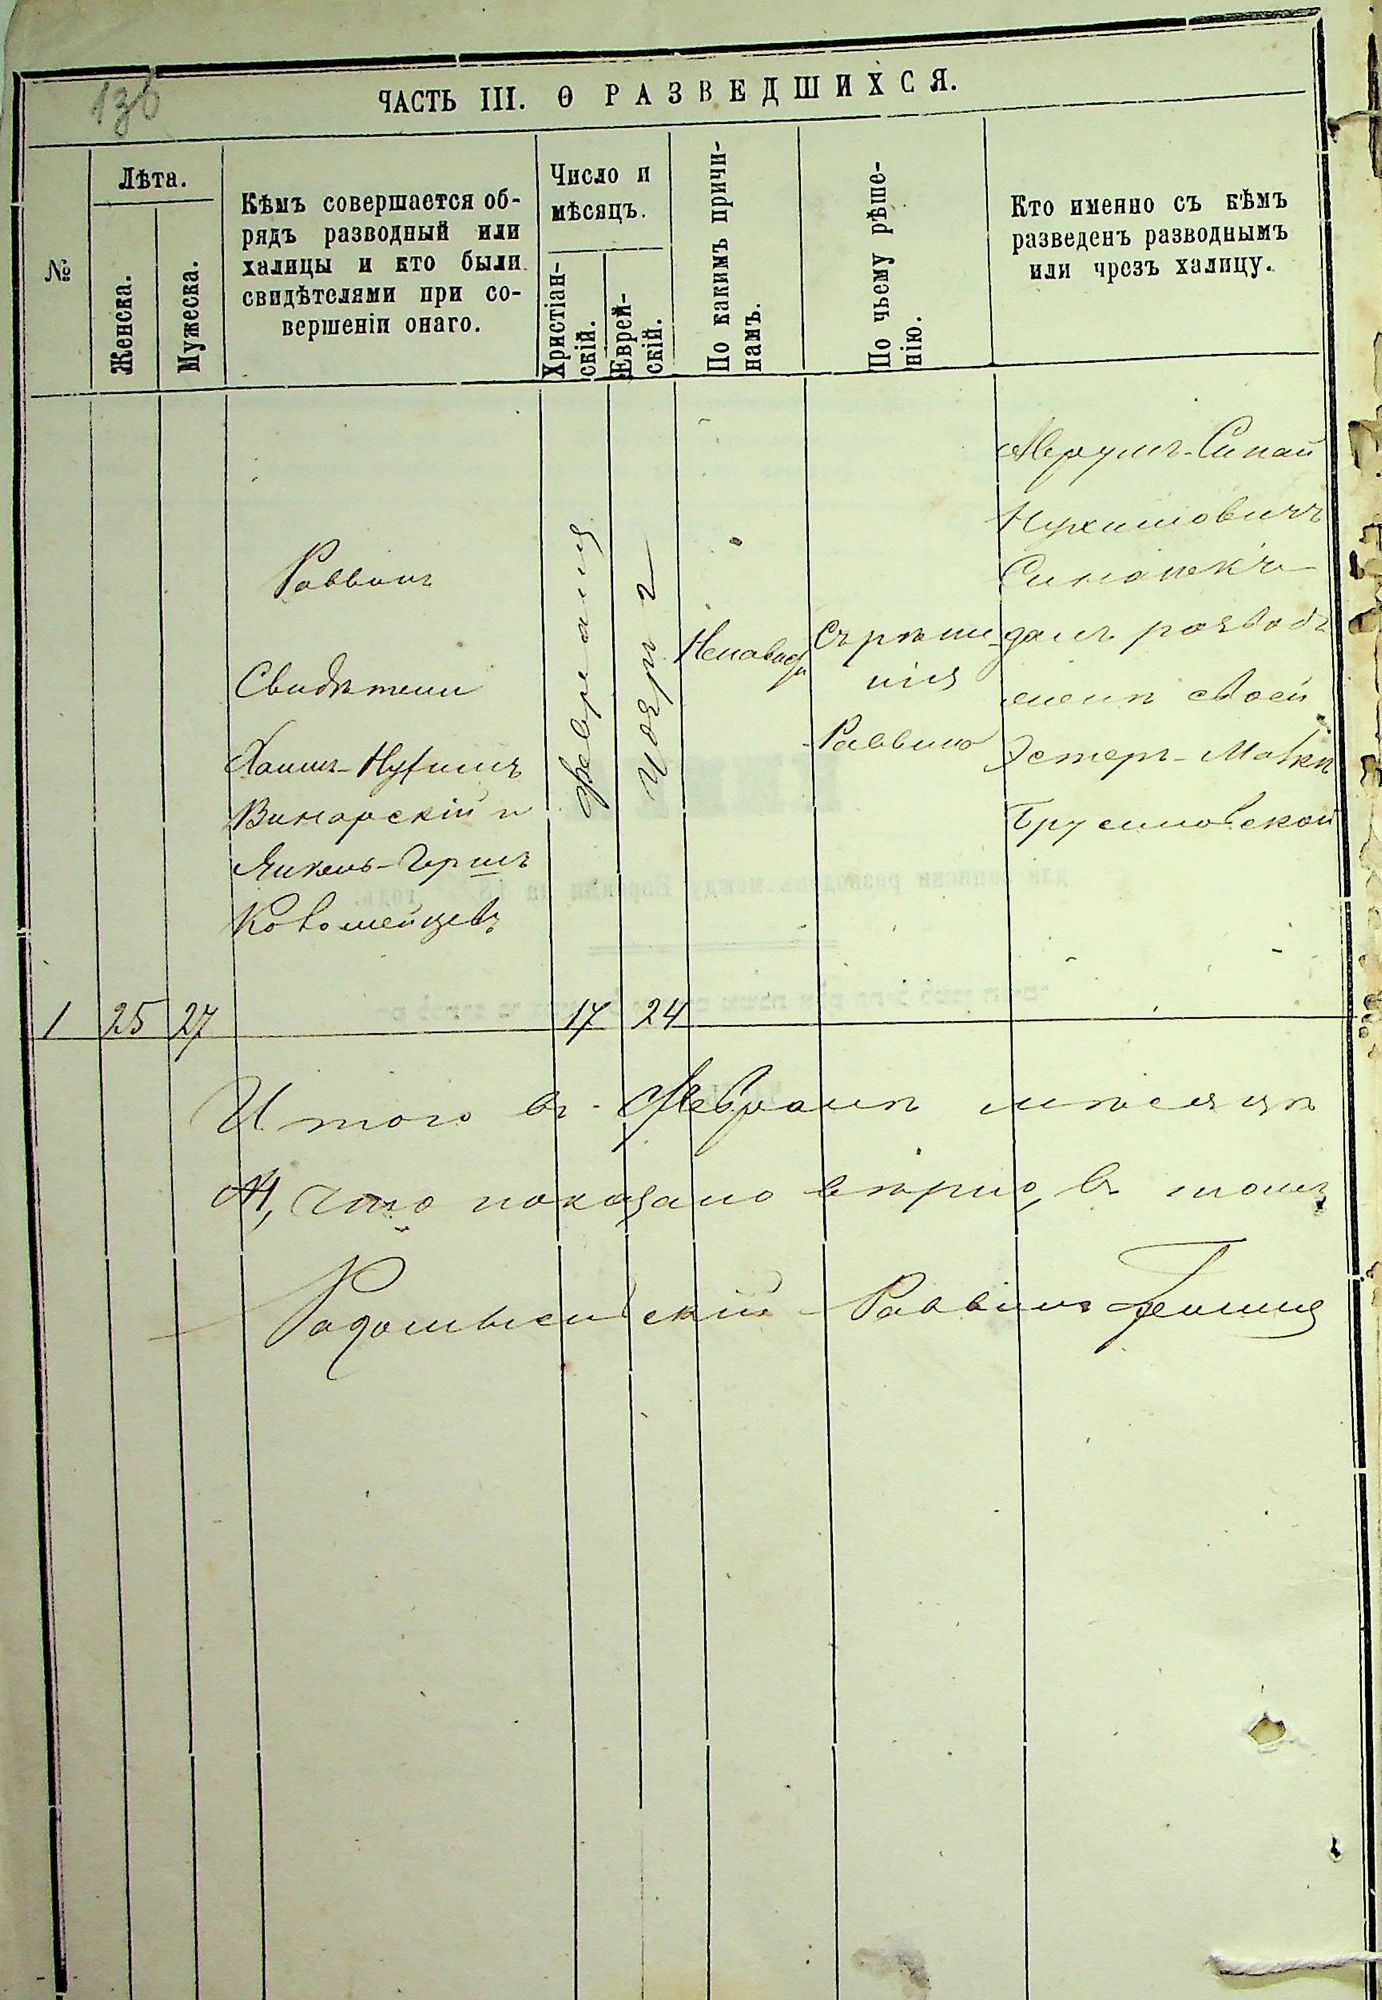 136
ЧАСТЬ III. О РАЗВЕДШИХСЯ.
№
Лѣта.
Женска.
Мужеска.
Кѣмъ совершается об-
рядъ разводный или
халицы и кто были
свидѣтелями при со-
вершеніи онаго.
Число и
мѣсяцъ.
Христіан-
скій.
Еврей-
скій.
По какимъ причи-
намъ.
По чьему рѣше-
нію.
Кто именно съ кѣмъ
разведенъ разводнымъ
или чрезъ халицу.
1
25
27
Раввинъ
Свидѣтели
Хаимъ-Нухимъ
Винарскій и
Янкель-Гершъ
Коломейцевъ
февраля
17
24
Ненавиди
Съ рѣше
нія
Раввина
Аврумъ-Синай
Нухимовичъ
далъ разводъ
женѣ своей
Эстеръ-Малкѣ
Брусиловской
Итого въ Февралѣ мѣсяцѣ
что показано вѣрно, въ томъ
Радомысльскій Раввинъ